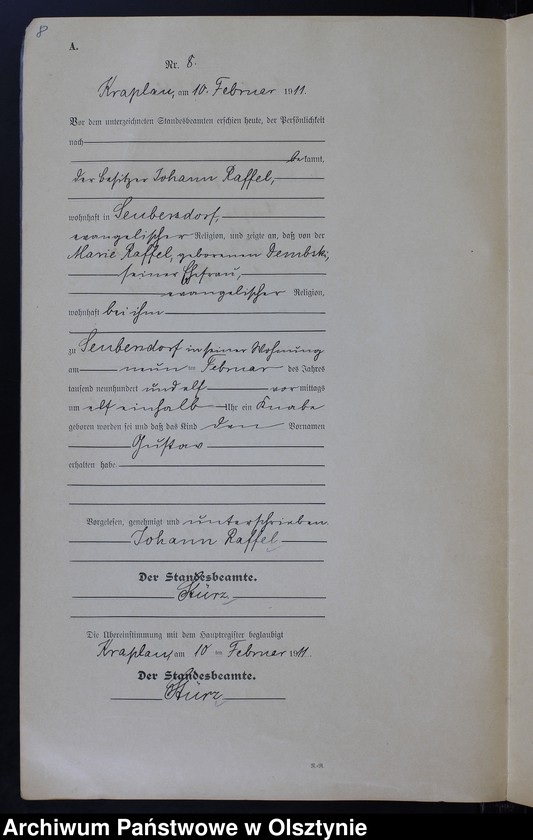 8
A.
Nr. 8.
Kraplau, am 10. Februar 1911.
Vor dem unterzeichneten Standesbeamten erschien heute, der Persönlichkeit
nach
bekannt,
der Besitzer Johann Raffel,
wohnhaft in Seubersdorf,
evangelischer Religion, und zeigte an, daß von der
Marie Raffel, geborenen Dembski,
seiner Ehefrau,
evangelischer Religion,
wohnhaft bei ihm
zu Seubersdorf in seiner Wohnung
am neunten Februar des Jahres
tausend neunhundert und elf vormittags
um elf einhalb Uhr ein Knabe
geboren worden sei und daß das Kind den Vornamen
Gustav
erhalten habe.
Vorgelesen, genehmigt und unterschrieben.
Johann Raffel
Der Standesbeamte.
Kürz
Die Übereinstimmung mit dem Hauptregister beglaubigt
Kraplau, am 10ten Februar 1911.
Der Standesbeamte.
Kürz
Archiwum Państwowe w Olsztynie